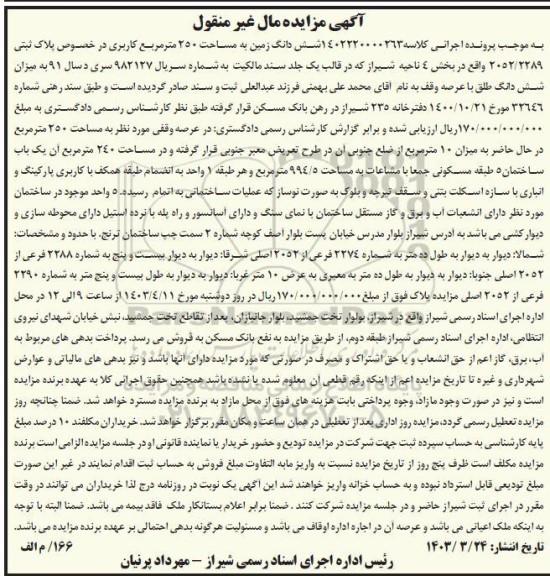 آگهی مزایده مال غیر منقول
به موجب پرونده اجرائی کلاسه۱۴۰۲۲۲۰۰۰۰۲۶۳شش دانگ زمین به مساحت ۲۵۰ مترمربع کاربری در خصوص پلاک ثبتی
۲۰۵۲/۲۲۸۹ واقع در بخش ۴ ناحیه شیراز که در قالب یک جلد سند مالکیت به شماره سریال ۹۸۲۱۲۷ سری د سال ۹۱ به میزان
شش دانگ طلق با عرصه وقف به نام آقای محمد علی بهمنی فرزند عبدالعلی ثبت و سند صادر گردیده است و طبق سند رهنی شماره
۳۲۶۴۶ مورخ ۱۴۰۰/۱۰/۲۱ دفترخانه ۲۳۵ شیراز در رهن بانک مسکن قرار گرفته طبق نظر کارشناس رسمی دادگستری به مبلغ
۱۷۰/۰۰۰/۰۰۰/۰۰۰ریال ارزیابی شده و برابر گزارش کارشناس رسمی دادگستری: در عرصه وقفی مورد نظر به مساحت ۲۵۰ مترمربع
در حال حاضر به میزان ۱۰ مترمربع از ضلع جنوبی آن در طرح تعریض معبر جنوبی قرار گرفته و در مساحت ۲۴۰ مترمربع آن یک باب
ساختمان۵ طبقه مسکونی جمعا با مشاعات به مساحت ۹۹۴/۵ مترمربع و هر طبقه ۱ واحد به انضمام طبقه همکف با کاربری پارکینگ و
انباری با سازه اسکلت بتنی و سقف تیرچه و بلوک به صورت نوساز که عملیات ساختمانی به اتمام رسیده. ۵ واحد موجود در ساختمان
مورد نظر دارای انشعابات آب و برق و گاز مستقل ساختمان با نمای سنگ و دارای آسانسور و راه پله با نرده استیل دارای محوطه سازی و
دیوار کشی می باشد به آدرس شیراز بلوار مدرس خیابان پست بلوار آصف کوچه شماره ۲ سمت چپ ساختمان ترنج. با حدود و مشخصات:
شمالا: دیوار به دیوار به طول ده متر به شماره ۲۲۷۴ فرعی از ۲۰۵۲ اصلی شرقا: دیوار به دیوار بیست و پنج به شماره ۲۲۸۸ فرعی از
۲۰۵۲ اصلی جنوبا: دیوار به دیوار به طول ده متر به معبری به عرض ۱۰ متر غربا: دیوار به دیوار به طول بیست و پنج متر به شماره ۲۲۹۰
فرعی از ۲۰۵۲ اصلی مزایده پلاک فوق از مبلغ ۱۷۰/۰۰۰/۰۰۰/۰۰۰ریال در روز دوشنبه مورخ ۱۴۰۳/۴/۱۱ از ساعت ۹ الی ۱۲ در محل
اداره اجرای اسناد رسمی شیراز واقع در شیراز، بولوار تخت جمشید، بلوار جانبازان، بعد از تقاطع تخت جمشید، نبش خیابان شهدای نیروی
انتظامی، اداره اجرای اسناد رسمی شیراز طبقه دوم، از طریق مزایده به نفع بانک مسکن به فروش می رسد. پرداخت بدهی های مربوط به
آب، برق، گاز اعم از حق انشعاب و یا حق اشتراک و مصرف در صورتی که مورد مزایده دارای آنها باشد و نیز بدهی های مالیاتی و عوارض
شهرداری و غیره تا تاریخ مزایده اعم از اینکه رقم قطعی آن معلوم شده یا نشده باشد همچنین حقوق اجرائی کلا به عهده برنده مزایده
است و نیز در صورت وجود مازاد، وجوه پرداختی بابت هزینه های فوق از محل مازاد به برنده مزایده مسترد خواهد شد. ضمنا چنانچه روز
مزایده تعطیل رسمی گردد، مزایده روز اداری بعد از تعطیلی در همان ساعت و مکان مقرر برگزار خواهد شد. خریداران مکلفند ۱۰ درصد مبلغ
پایه کارشناسی به حساب سپرده ثبت جهت شرکت در مزایده تودیع و حضور خریدار یا نماینده قانونی او در جلسه مزایده الزامی است برنده
مزایده مکلف است ظرف پنج روز از تاریخ مزایده نسبت به واریز مابه التفاوت مبلغ فروش به حساب ثبت اقدام نمایند در غیر این صورت
مبلغ تودیعی قابل استرداد نبوده و به حساب خزانه واریز خواهند شد این آگهی یک نوبت در روزنامه درج لذا خریداران می توانند در وقت
مقرر در اجرای ثبت شیراز حاضر و در جلسه مزایده شرکت کنند . ضمنا برابر اعلام بستانکار ملک فاقد بیمه می باشد. ضمنا البته با توجه
به اینکه ملک اعیانی می باشد و عرصه آن در اجاره اداره اوقاف می باشد و مسئولیت هرگونه بدهی احتمالی بر عهده برنده مزایده می باشد.
تاریخ انتشار: ۱۴۰۳/۳/۲۴
۱۶۶/ م الف
رئیس اداره اجرای اسناد رسمی شیراز – مهرداد پرنیان